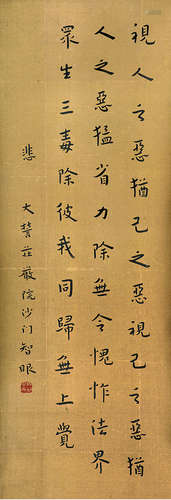 視人之惡猶己之惡視己之惡猶
人之惡猛省力除無令愧怍法界
眾生三毒除彼我同歸無上覺
悲 大誓莊嚴院沙门智眼